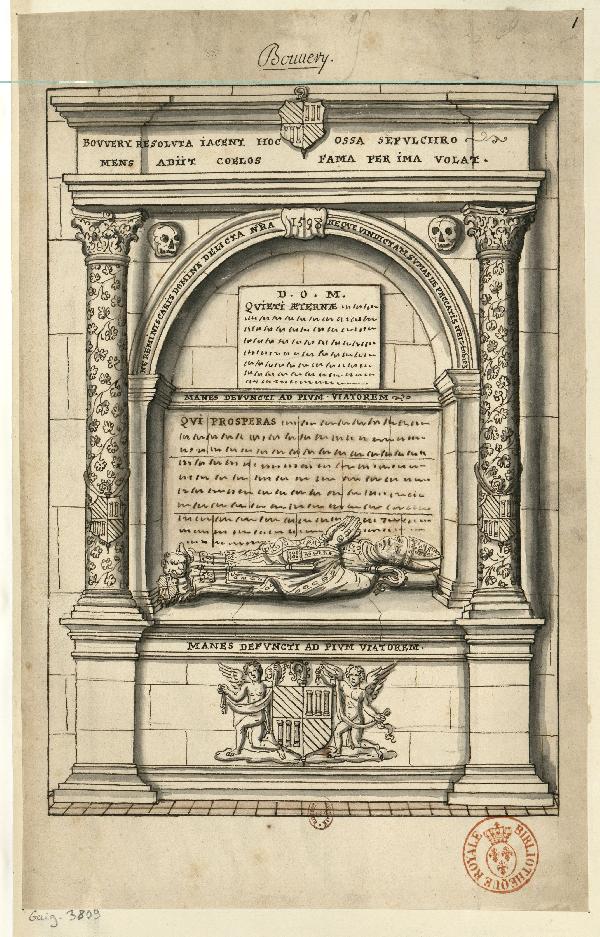 1
Bouuery.
BOVVERY RESOLVTA IACENT HOC OSSA SEPVLCHRO
MENS ADIIT COELOS FAMA PER IMA VOLAT.
NE REMINISCARIS DOMINE DELICTA NRA 1598 NEQVE VINDICTAM SVMAS DE PECCATIS
D. O. M.
QVIETI ÆTERNÆ
MANES DEFVNCTI AD PIVM VIATOREM
QVI PROSPERAS
MANES DEFVNCTI AD PIVM VIATOREM.
BIBLIOTHEQUE ROYALE
Gaig. 3899